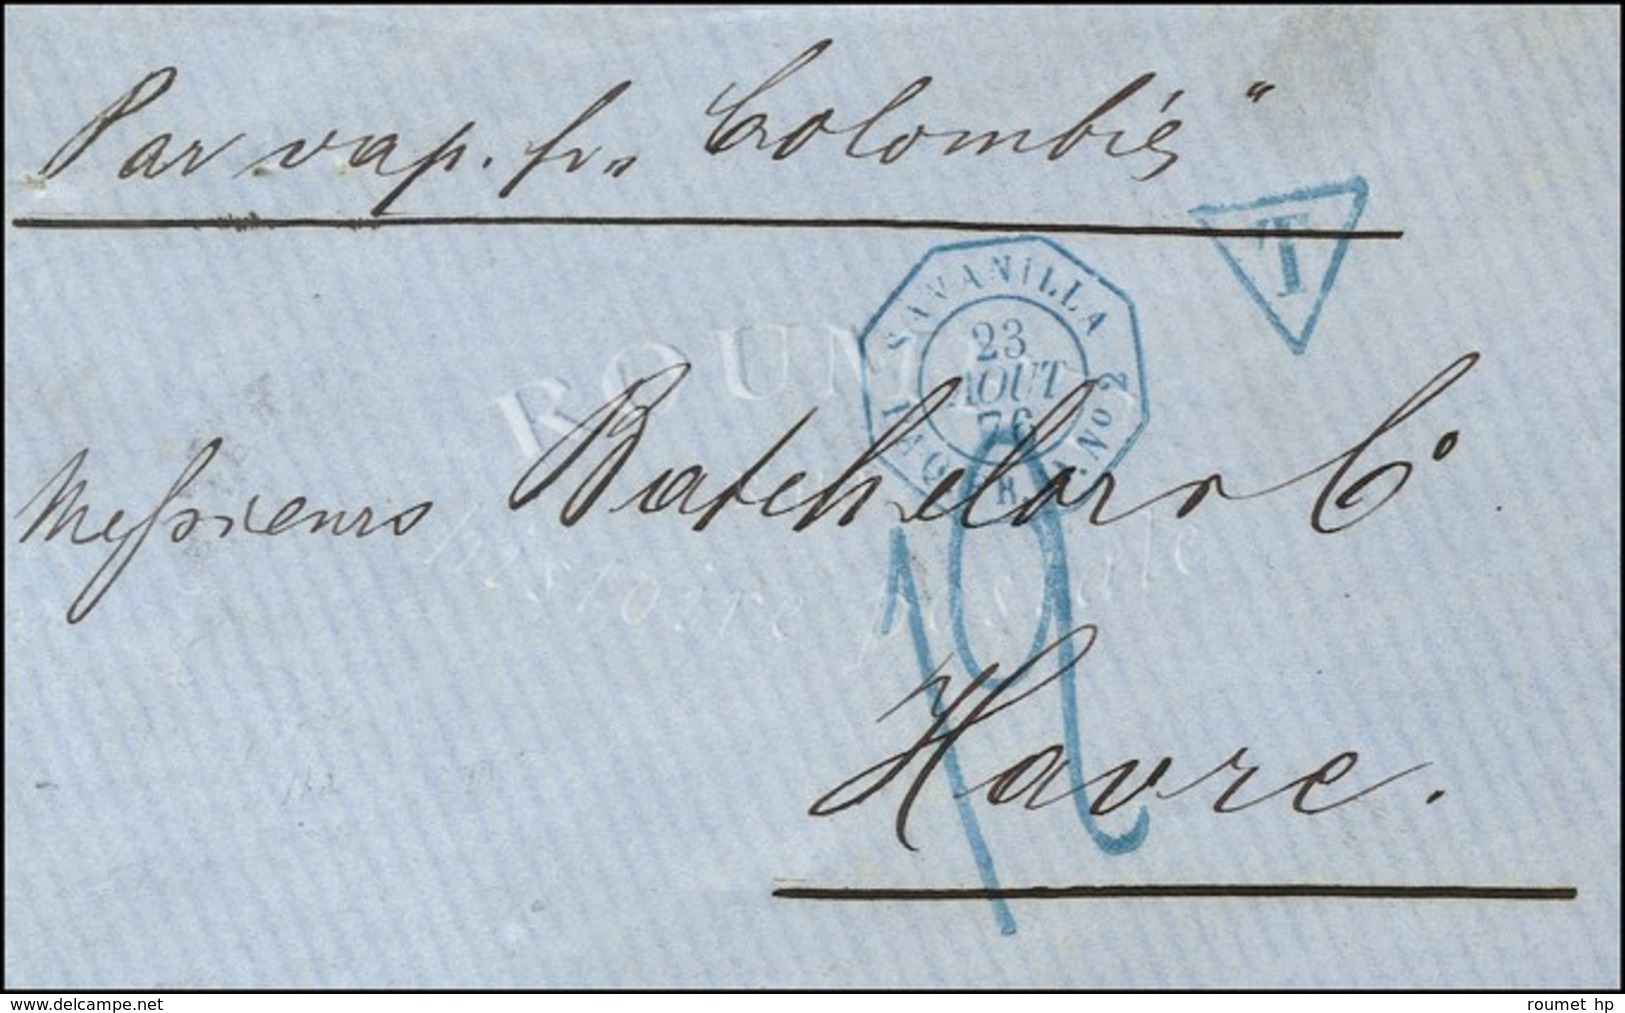 Par vap. frs „Colombie“
T
SAVANILLA
23
AOUT
76
PAQ. FR. A No 2
ROUMET
Histoire postale
Messieurs Batchelor & Co.
12
Havre.
www.delcampe.net
roumet hp